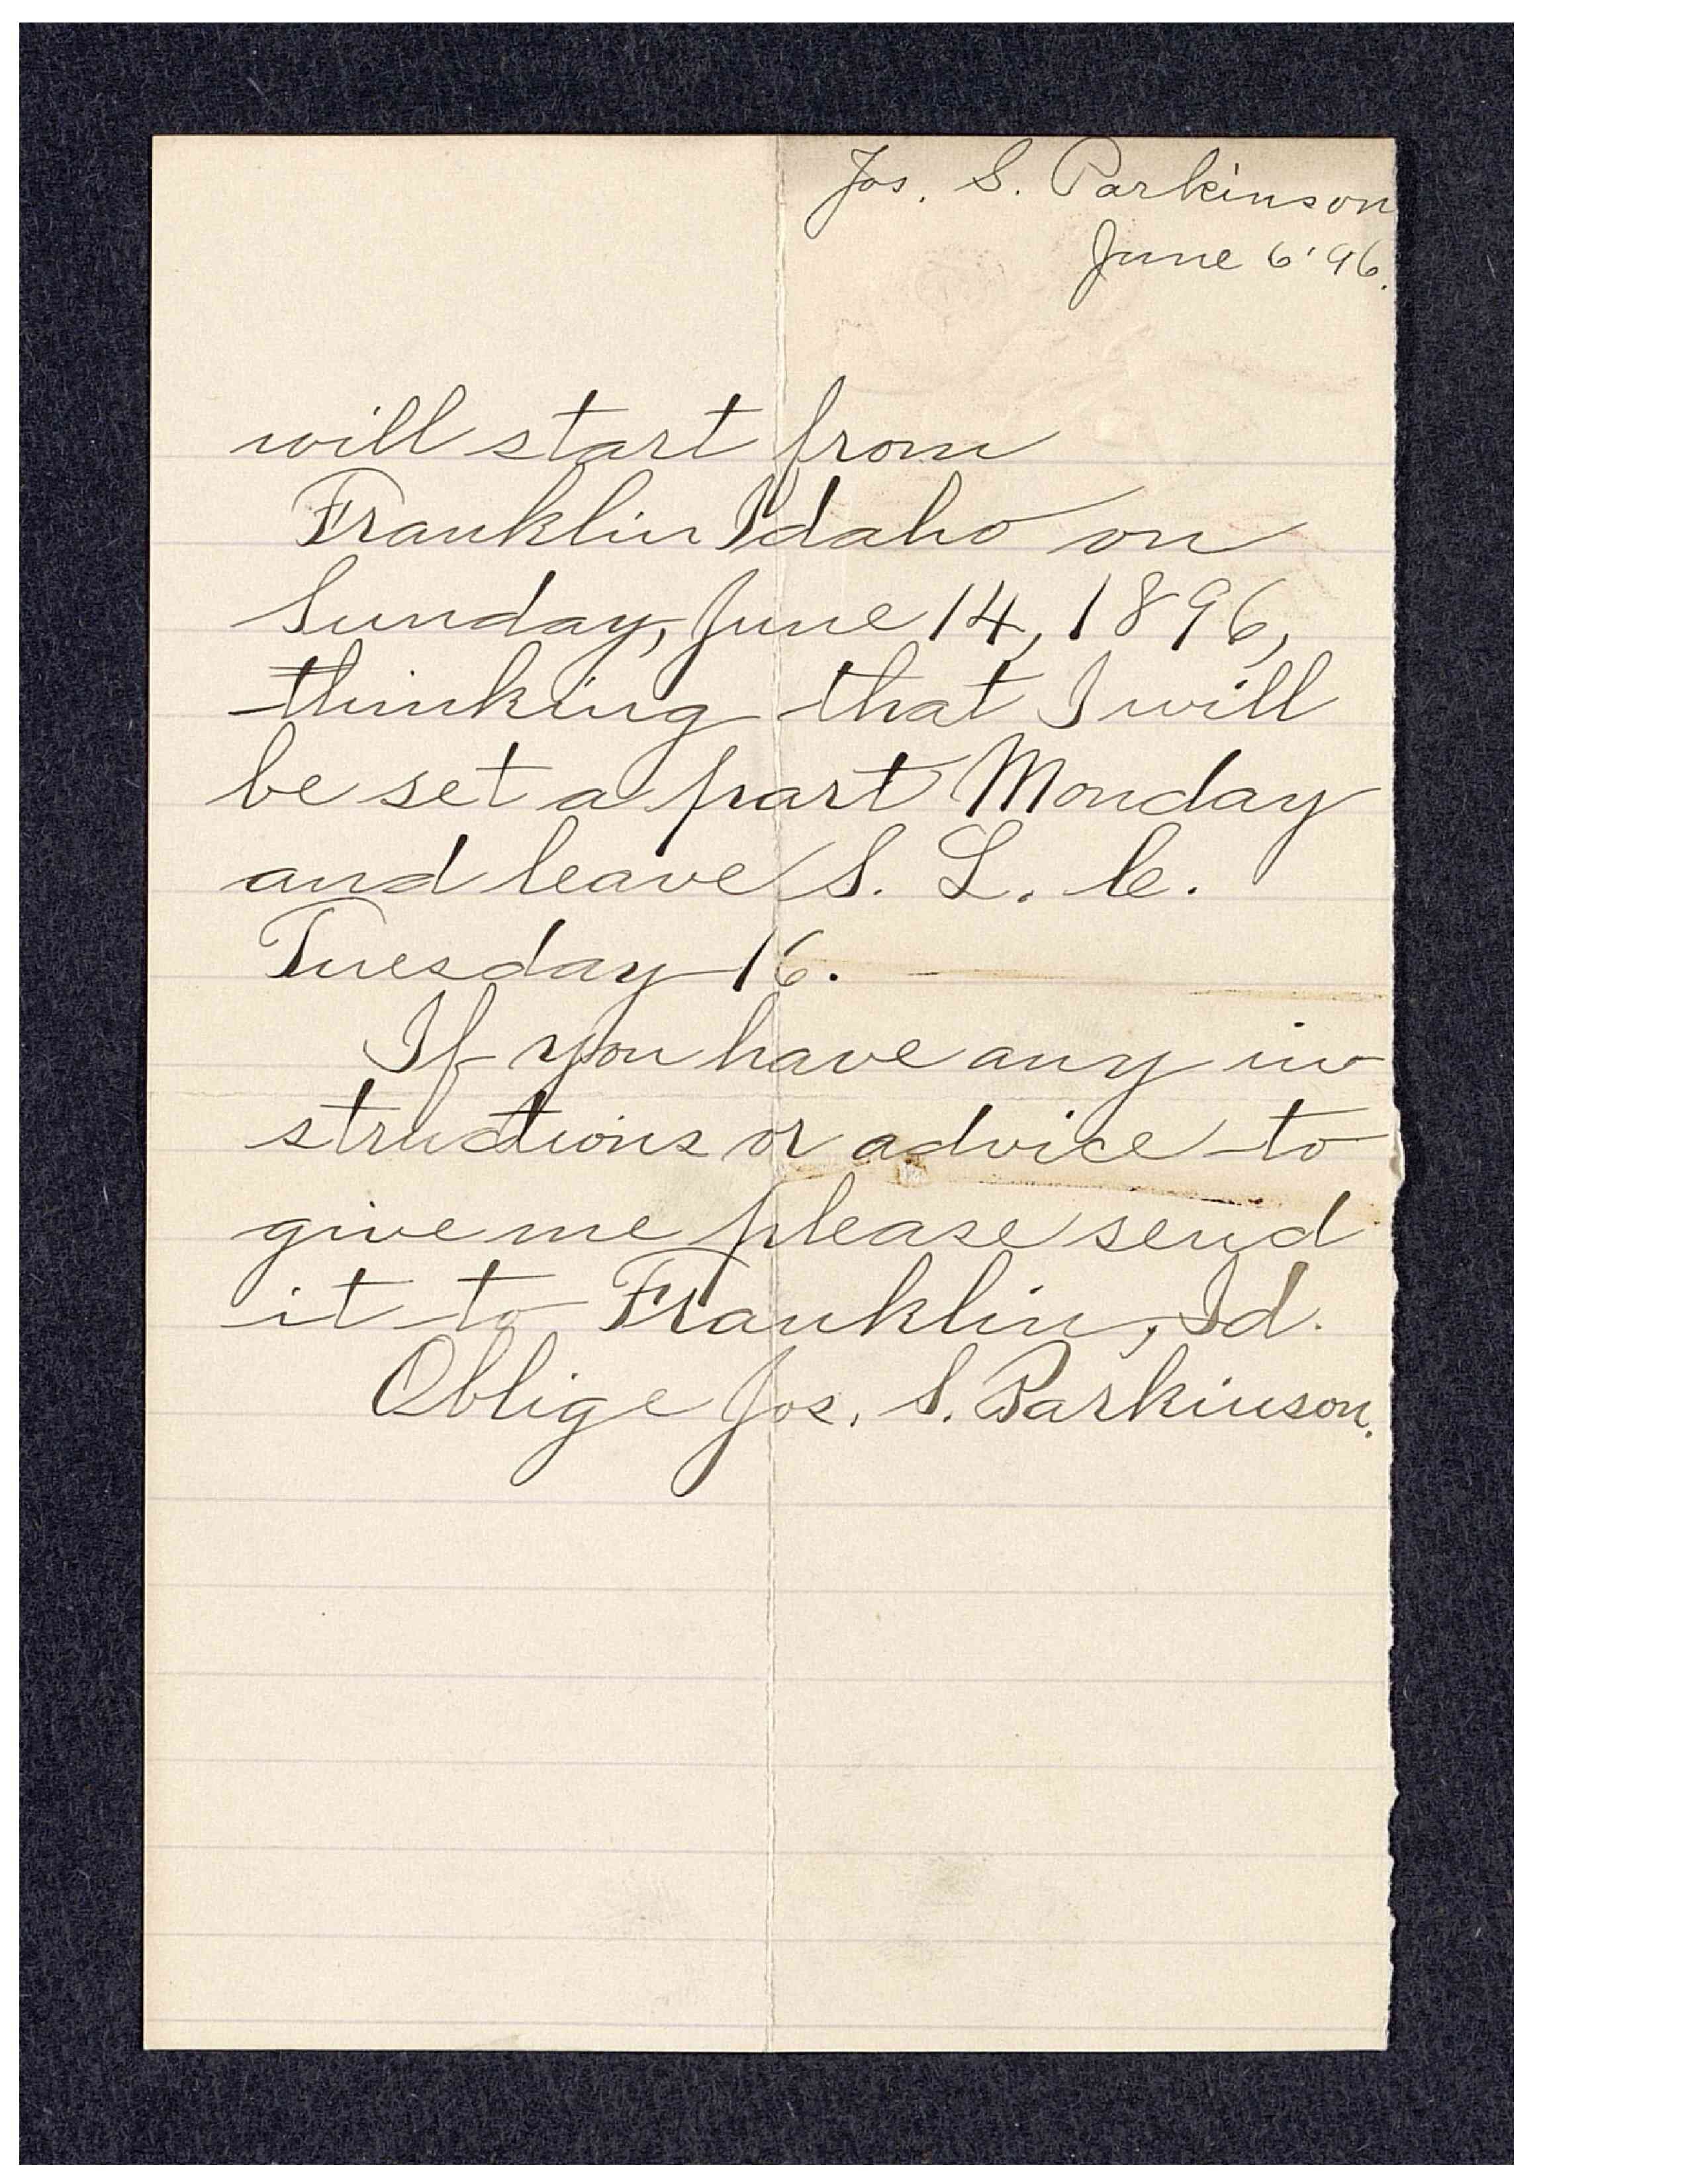 Jos. S. Parkinson
June 6 '96.
will start from
Franklin Idaho on
Sunday, June 14, 1896,
thinking that I will
be set a part Monday
and leave S. L. C.
Tuesday 16.
If you have any in
structions or advice to
give me please send
it to Franklin, Id.
Oblige Jos. S. Parkinson.